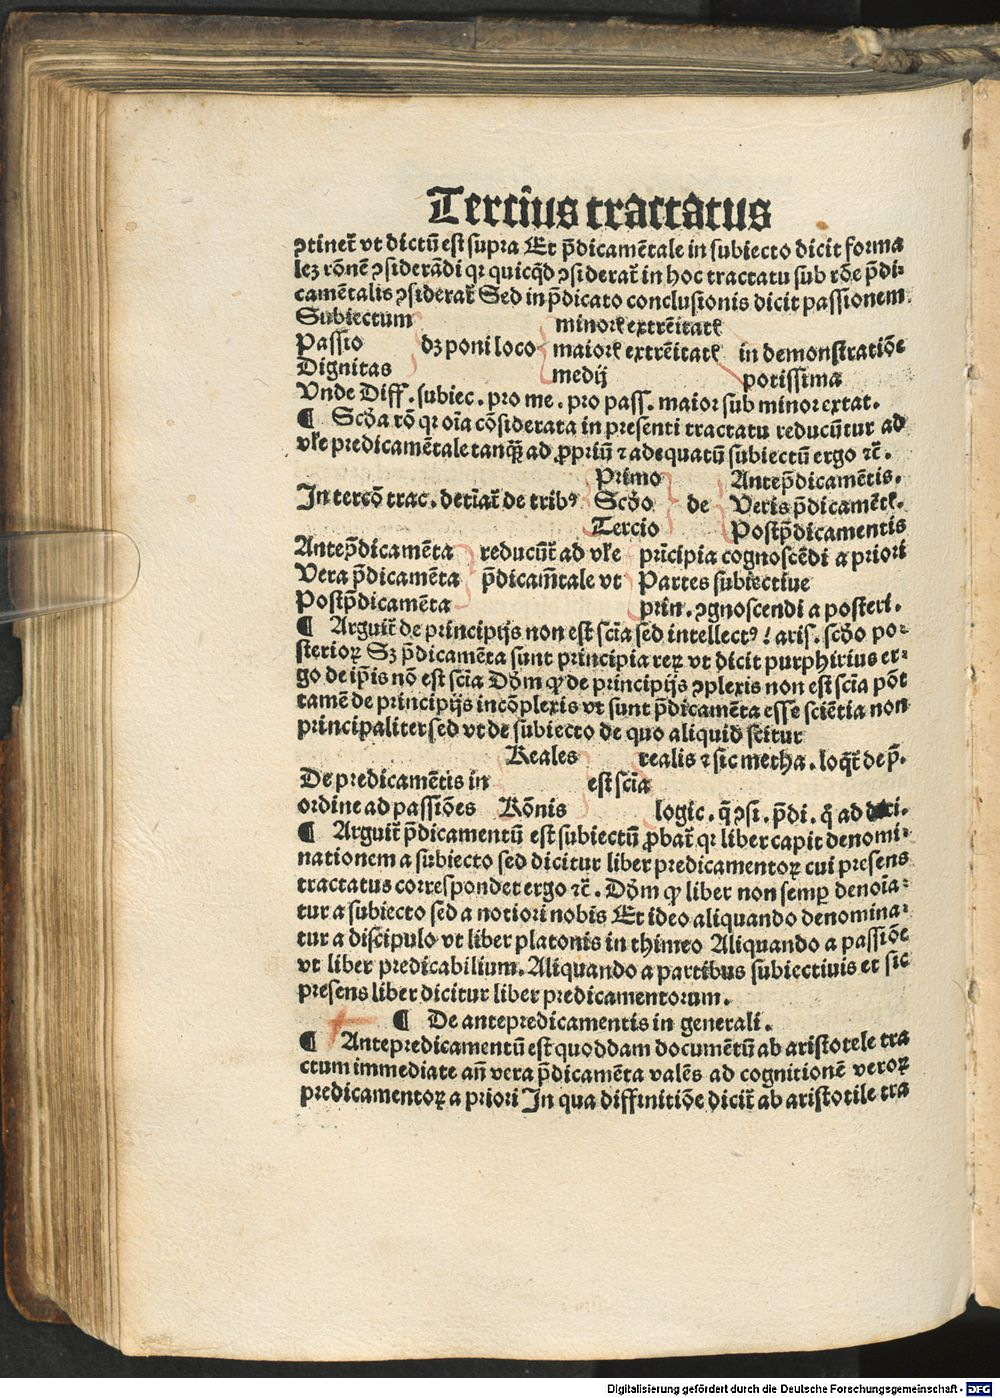 Terciūs tractatus
ꝯtineṫ vt dictū est supra Et p̄dicamētale in subiecto dicit forma
leꝫ rōnē ꝯsiderādi qꝛ quicq̄d ꝯsideraṫ in hoc tractatu sub rōe p̄di⸗
camētalis ꝯsideraṫ Sed in p̄dicato conclusionis dicit passionem
Subiectum minorꝭ extrēitatꝭ
Passio dꝫ poni loco maiorꝭ extrēitatꝭ in demonstratiōe
Dignitas medij potissima
Vnde Diff. subiec. pro me. pro pass. maior sub minor extat.
¶ Scd̄a rō qꝛ oīa cōsiderata in presenti tractatu reducūtur ad
vꝉe predicamētale tanꝙ̄ ad ꝓpriū ⁊ adequatū subiectū ergo ⁊c̄.
Primo Antep̄dicamētis.
In tercō trac. detīaṫ de tribꝰ Scd̄o de Veris p̄dicamētꝭ.
Tercio Postp̄dicamentis
Antep̄dicamēta reducūṫ ad vꝉe prīcipia cognoscēdi a priori
Vera p̄dicamēta p̄dicam̄tale vt Partes subiectiue
Postp̄dicamēta prin. ꝯgnoscendi a posteri.
¶ Arguiṫ de principijs non est scīa sed intellectꝰ ! aris. scd̄o po⸗
sterioꝝ Sꝫ p̄dicamēta sunt principia reꝝ vt dicit purphirius er⸗
go de ip̄is nō est scīa Dd̄m ꝙ de principijs ꝯplexis non est scīa pōt
tamē de principijs incōplexis vt sunt p̄dicamēta esse sciētia non
principaliter sed vt de subiecto de quo aliquid scitur
Reales realis ⁊ sic metha. loqṫ de p̄.
De predicamētis in est scīa
ordine ad passiōes Rōnis logic. q̄ ꝯsi. p̄di. q̄ ad
¶ Arguiṫ p̄dicamentū est subiectū ꝓbaṫ qꝛ liber capit denomi⸗
nationem a subiecto sed dicitur liber predicamentoꝝ cui presens
tractatus correspondet ergo ⁊c̄. Dd̄m ꝙ liber non semꝑ denoīa⸗
tur a subiecto sed a notiori nobis Et ideo aliquando denomina⸗
tur a discipulo vt liber platonis in thimeo Aliquando a passiōe
vt liber predicabilium. Aliquando a partibus subiectiuis et sic
presens liber dicitur liber predicamentorum.
¶ De antepredicamentis in generali.
¶ Antepredicamentū est quoddam documētū ab aristotele tra
ctum immediate añ vera p̄dicamēta valēs ad cognitionē veroꝝ
predicamentoꝝ a priori In qua diffinitiōe diciṫ ab aristotile tra
Digitalisierung gefördert durch die Deutsche Forschungsgemeinschaft - DFG